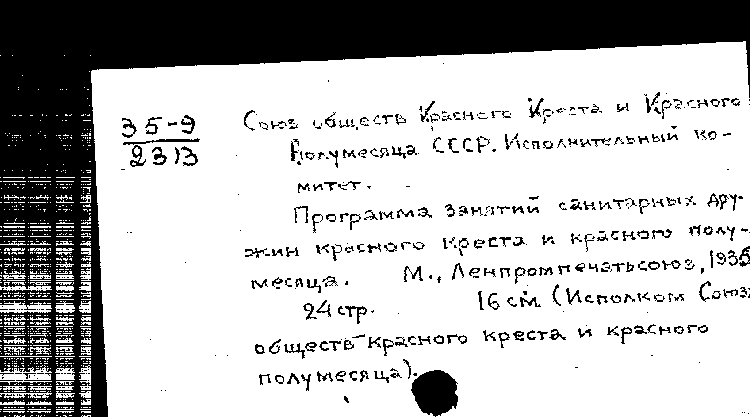 35-9
2313
Союз обществ Красного Креста и Красного
Полумесяца СССР. Исполнительный ко-
митет.
Программа занятий санитарных дру-
жин красного креста и красного полу-
месяца. М., Ленпромпечатьсоюз, 1935
24 стр. 16 см. (Исполком Союз
обществ красного креста и красного
полумесяца).